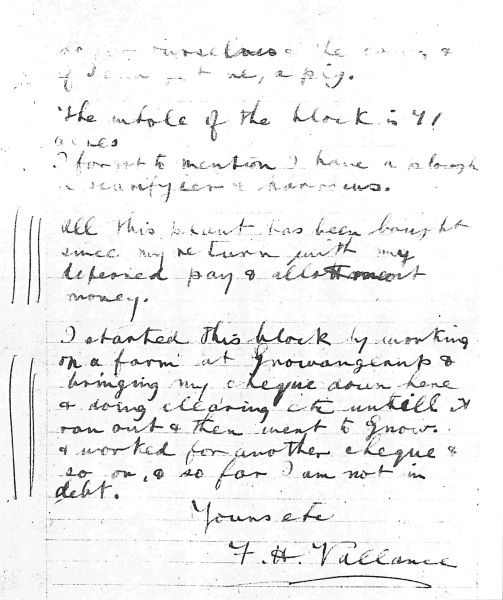 ourselves & the cows, &
if I can get one, a pig.
The whole of the block is 41
acres
I forgot to mention I have a plough
a scarifyier & harrows.
All this plant has been bought
since my return with my
deferied pay & allottment
money.
I started this block by working
on a farm at Gnowangerup &
bringing my cheque down here
& doing clearing etc untill it
ran out & then went to Gnow.
& worked for another cheque &
so on, & so far I am not in
debt.
Yours etc
F. H. Vallance